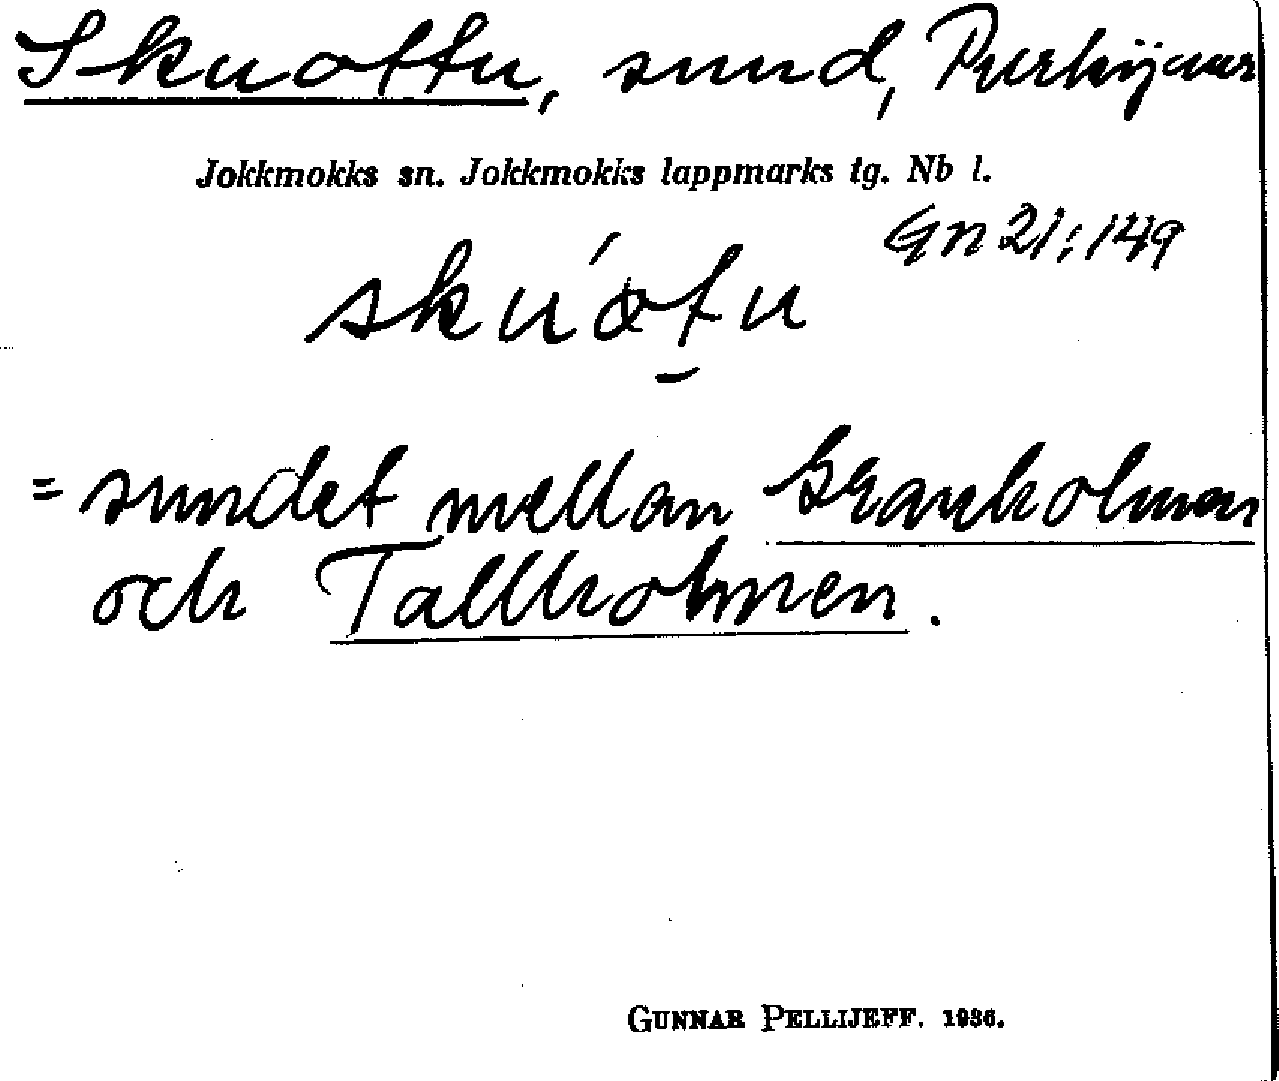 Skuottu, sund, Purkijaur
Jokkmokks sn. Jokkmokks lappmarks tg. Nb l.
Gn 21:149
skuotu
= sundet mellan Granholmen
och Tallholmen.
GUNNAR PELLIJEFF. 1936.